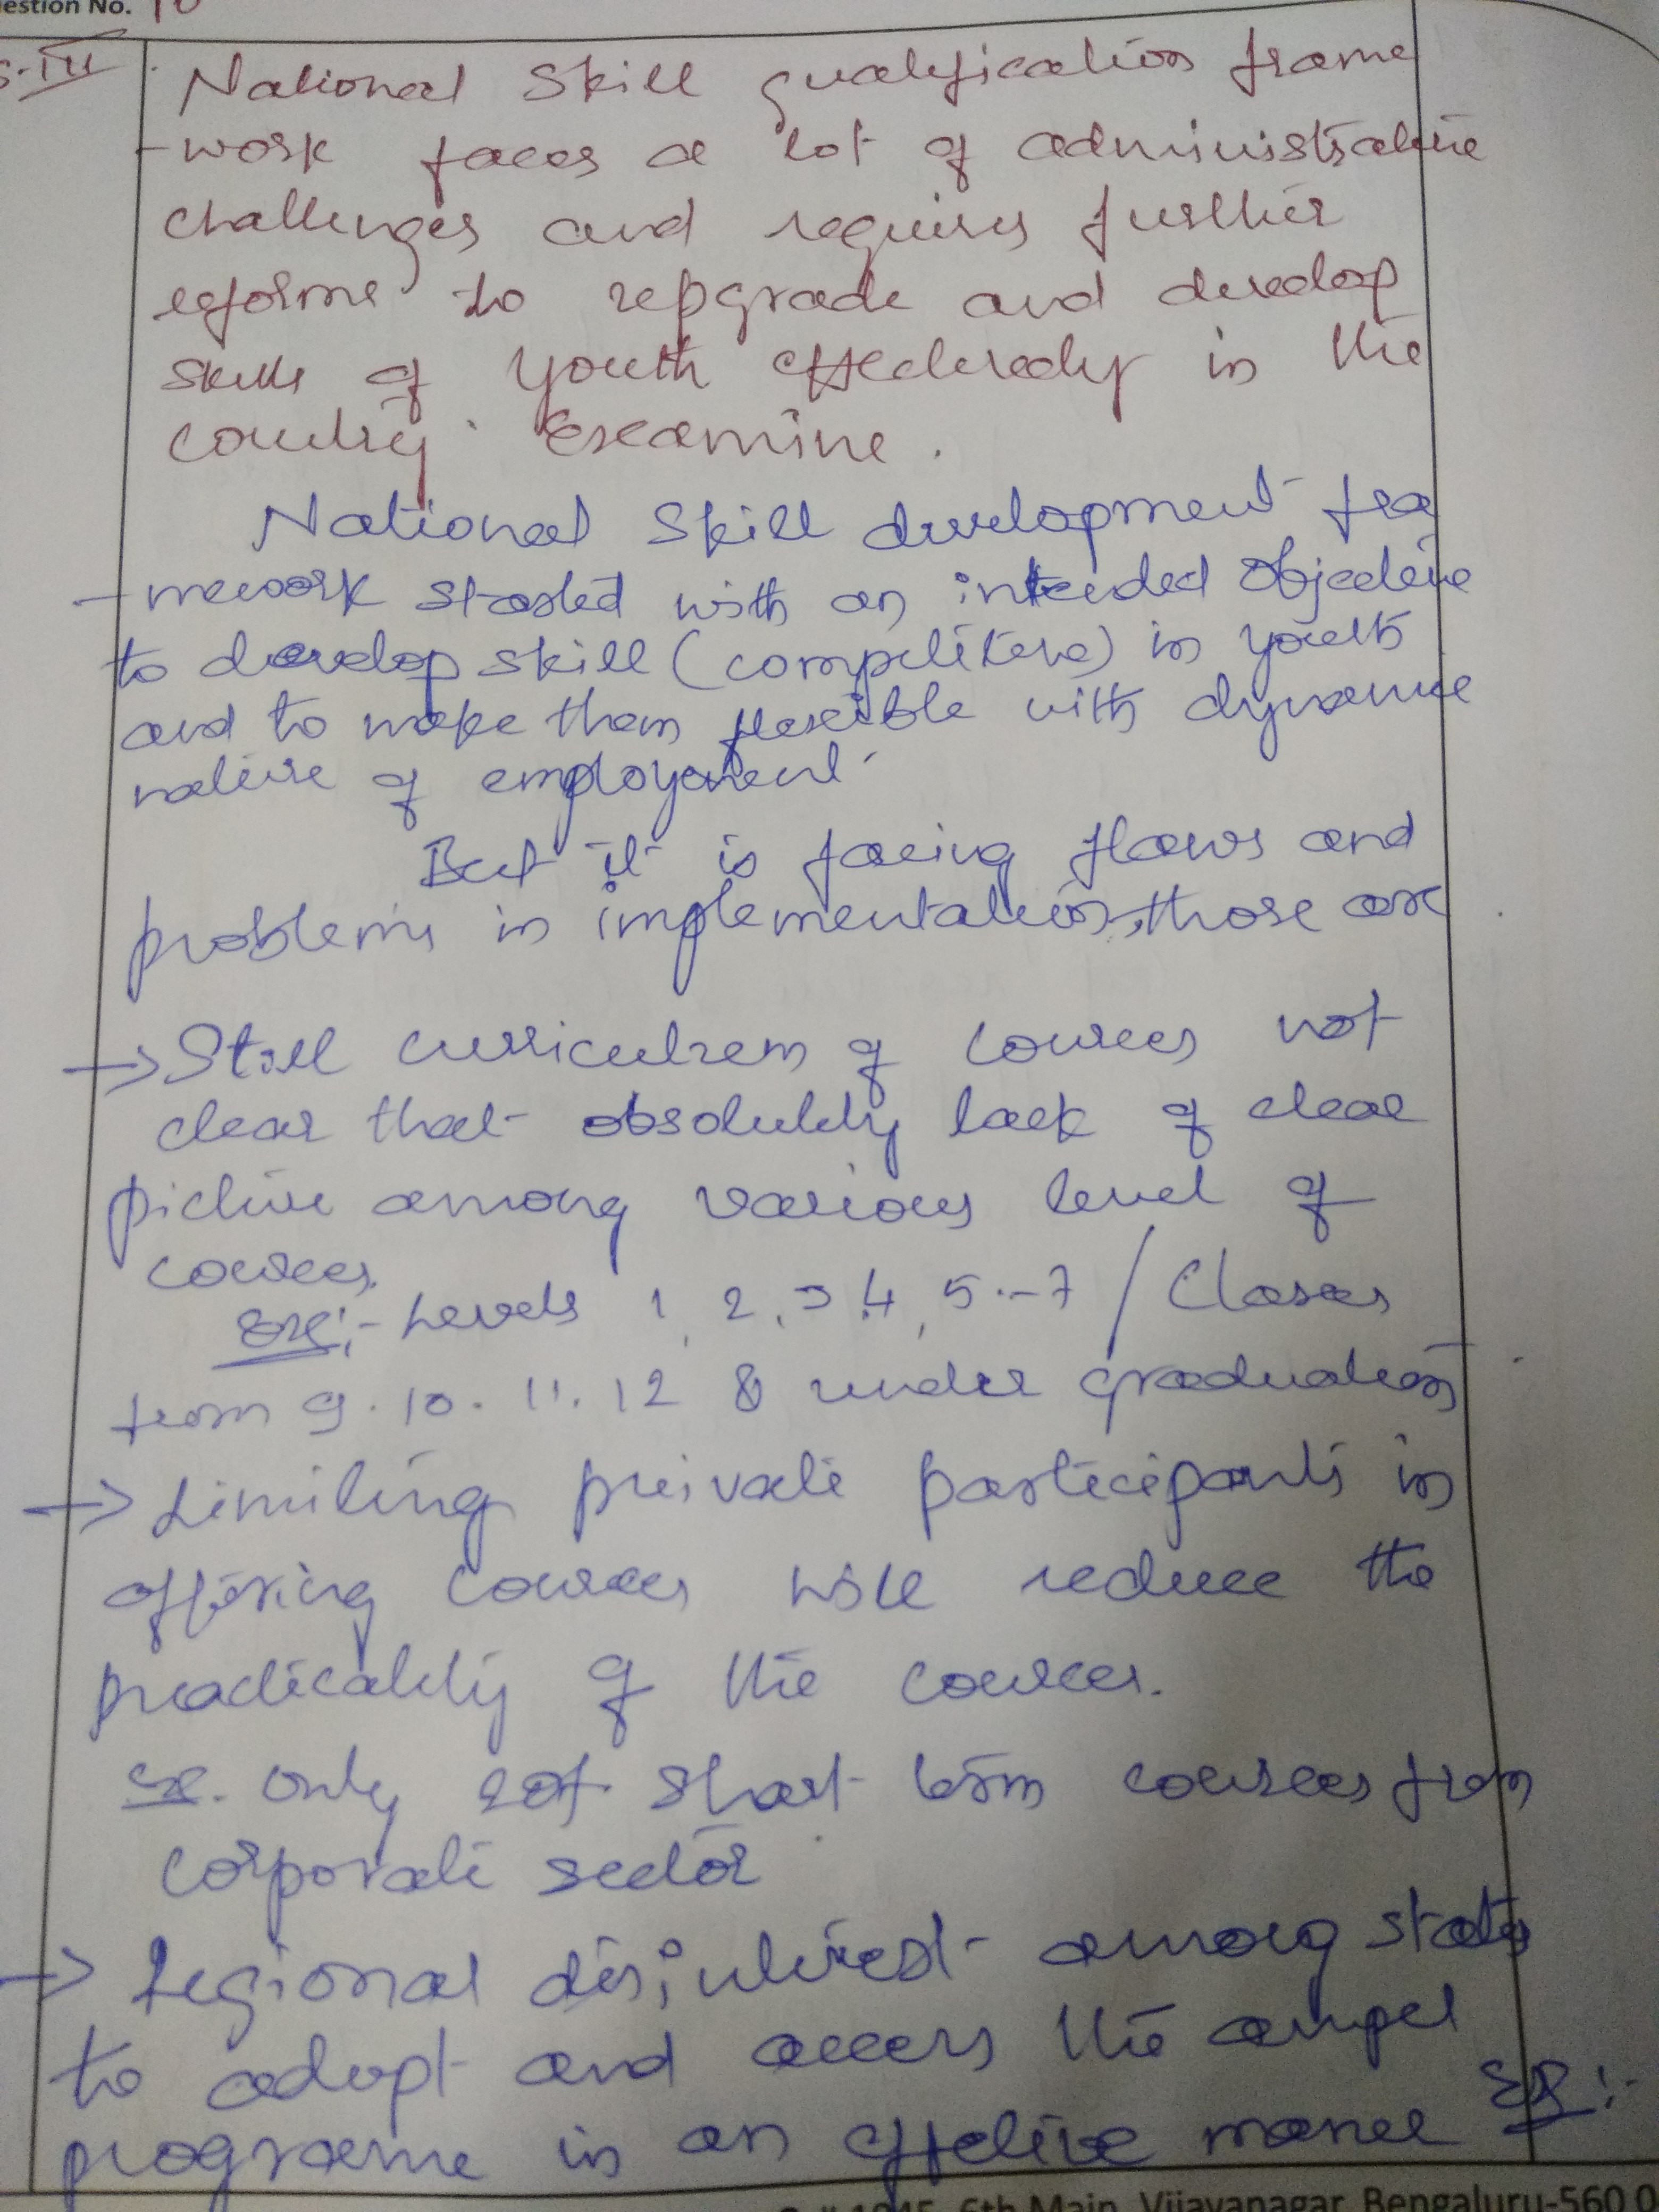 estion No. 10
S-III
National Skill qualification frame
-work faces a lot of administrative
challenges and requires further
reforms to upgrade and develop
skills of youth effectively in the
country. Examine.
National Skill development fra
-mework started with an intended Objective
to develop skill (competitive) in youth
and to make them flexible with dynamic
nature of employment.
But it is facing flaws and
problems in implementation, those are
→ Still curriculum of courses not
clear that absolutely lack of clear
picture among various level of
courses.
Ex:- Levels 1, 2, 3, 4, 5 -- 7 / Classes
from 9. 10. 11. 12 & under graduation
→ Limiting private participants in
offering courses will reduce the
practicality of the courses.
Ex. Only short term courses from
corporate sector
→ Regional disinterest among states
to adopt and access the
programme in an effective manner Ex:-
6th Main, Vijayanagar, Bengaluru-560 0